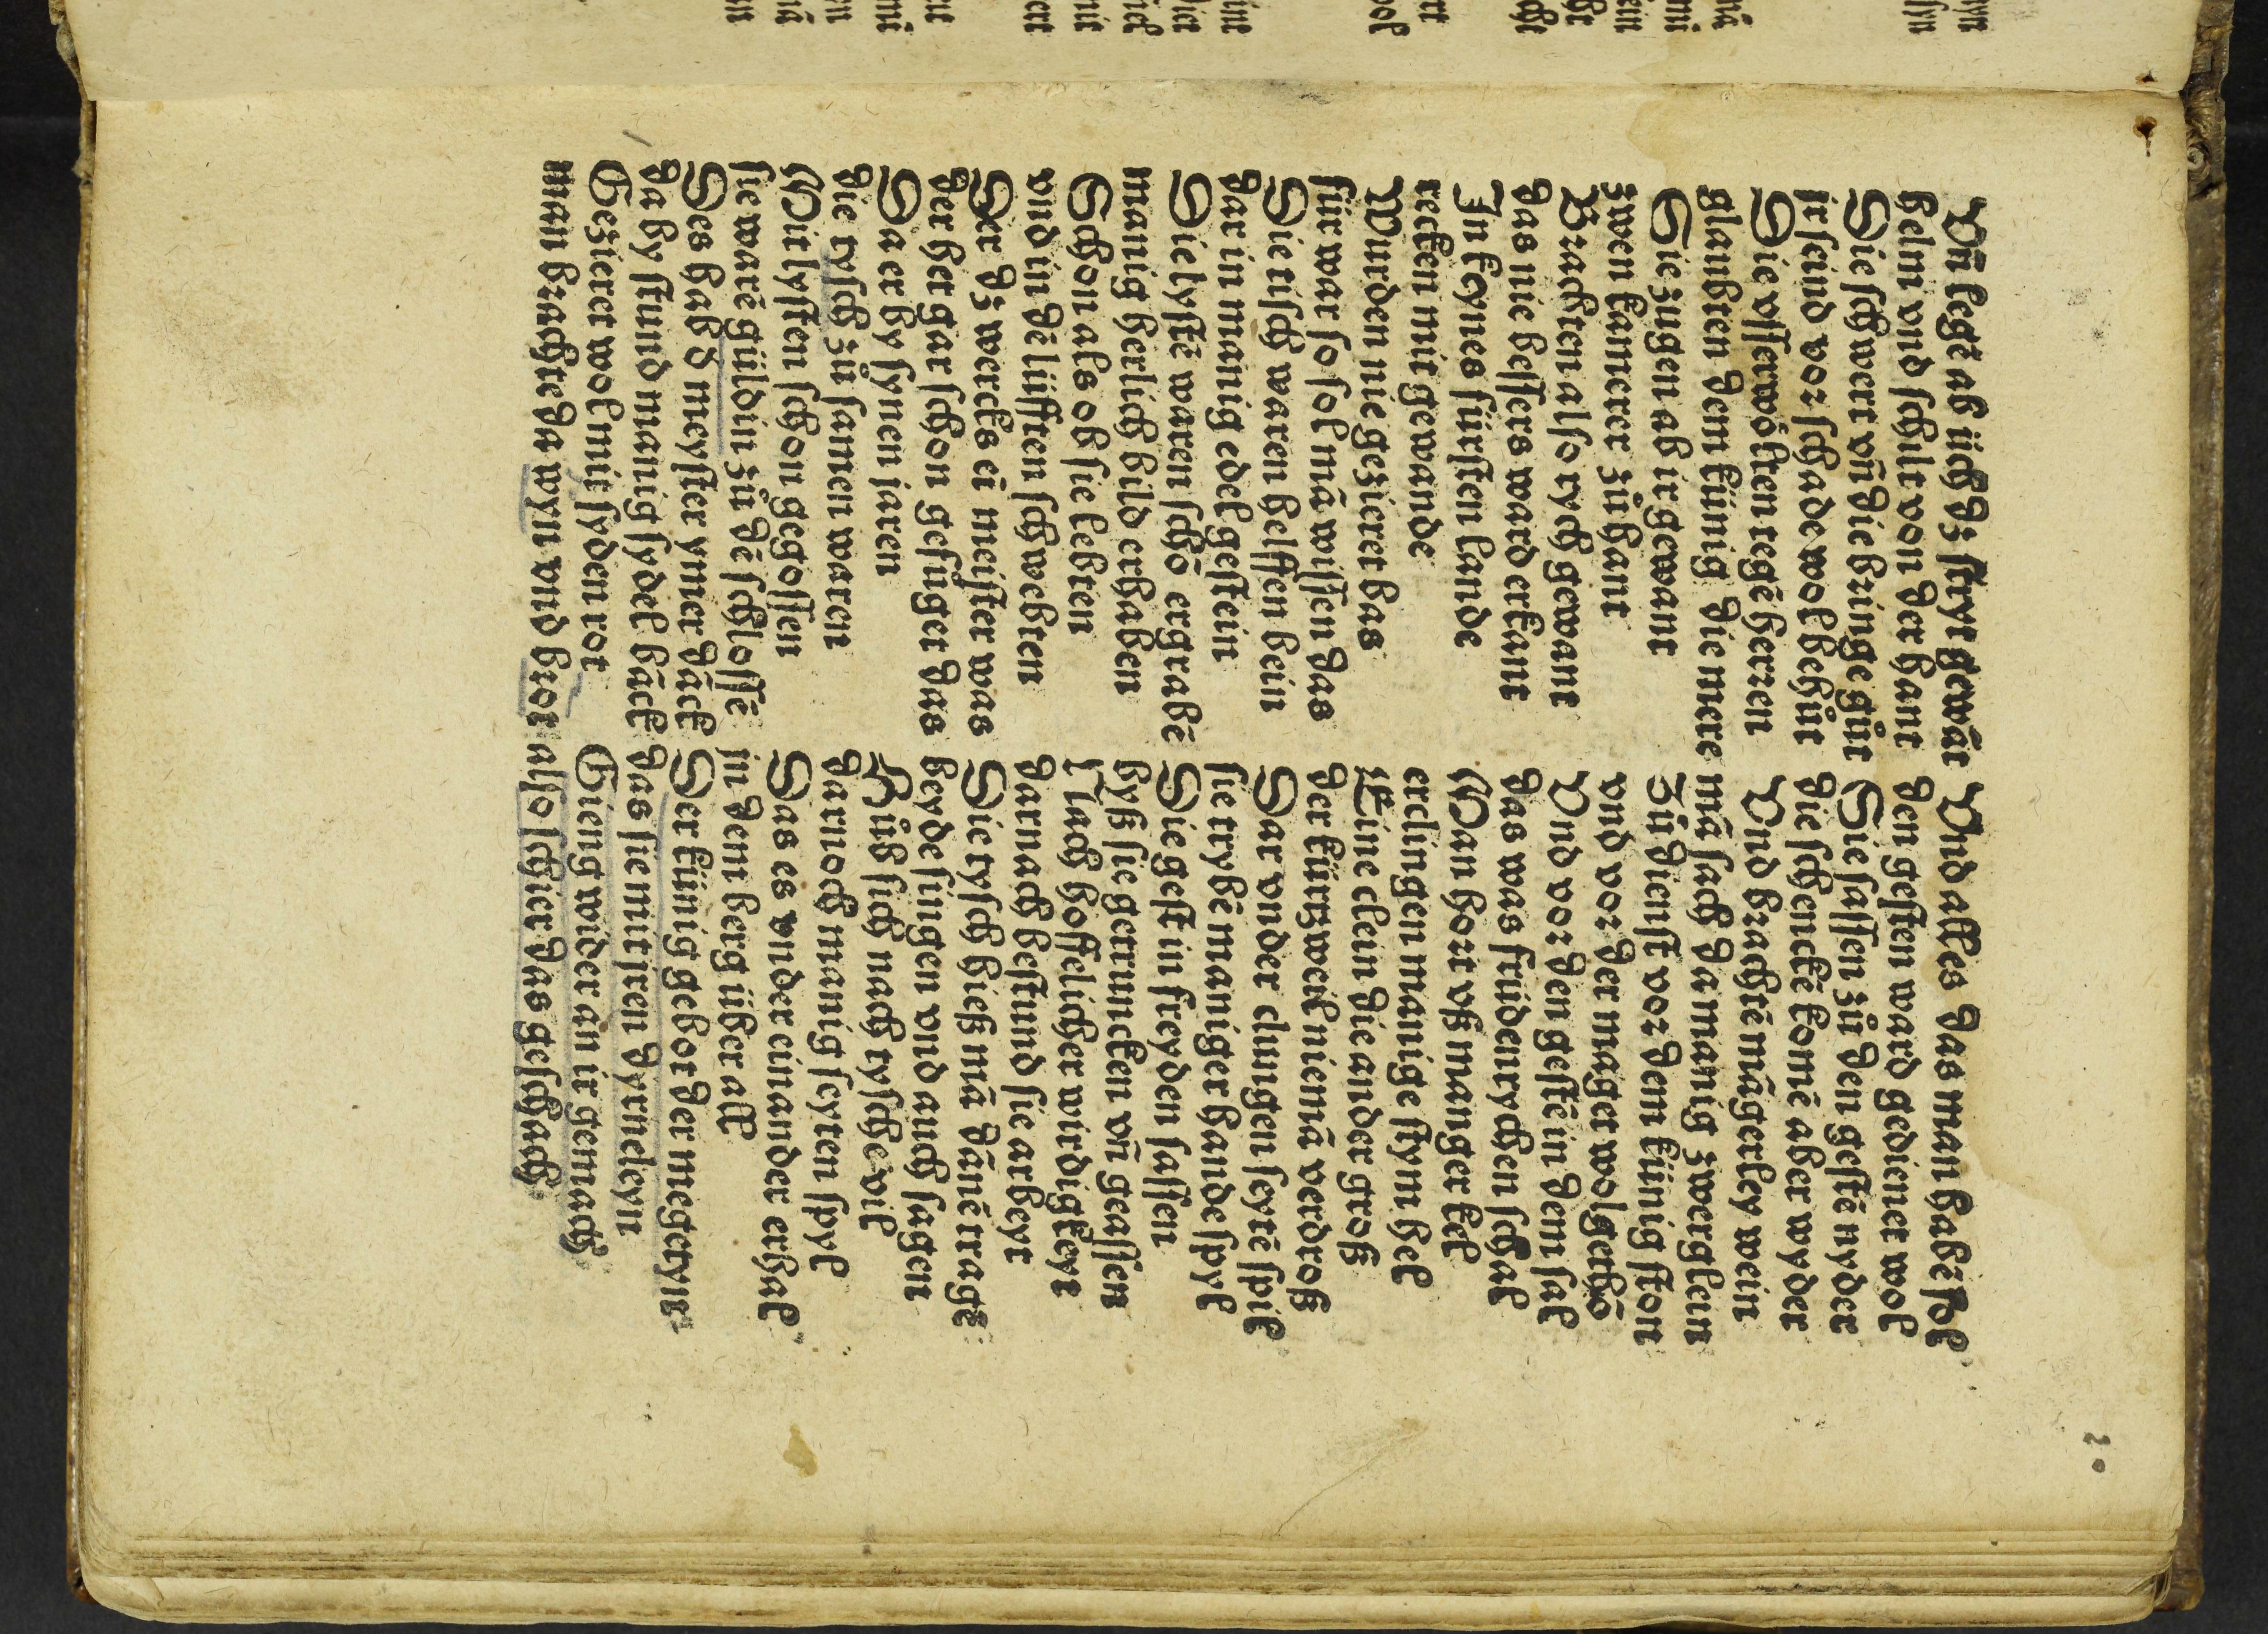 Vñ legẽ ab üch dz stryt gewãt
helm vnd schilt von der hant
Die schwert vñ die bringe gůt
ir seind vor schade wol behůt
Die vsserwölten tegẽ herren
glaubten dem künig die mere
Die zugen ab ir gewant
zwen kamerer zůhant
Brachten also rych gewant
das nie bessers ward erkant
In keynes fürsten lande
recken mit gewande
Wurden nie gezieret bas
fürwar so sol mã wissen das
Die tisch waren helffen bein
dar in manig edel gestein
Die lystẽ waren schõ ergrabẽ
manig herlich bild erhaben
Schon als ob sie lebten
vnd in dẽ lüfften schwebten
Der dz werckes ei meister was
der het gar schon gefůget das
Da er by synen jaren
die tysch zů samen waren
Mit lysten schon gegossen
sie warẽ güldin zů dẽ schlossẽ
Des hab d meyster ymer dãck
daby stund manig sydel bãck
Gezieret wol mit syden rot
man brachte da wyn vnd brot
Vnd alles das man habẽ sol
den gesten ward gedienet wol
Die sassen zů den gestẽ nyder
die schenckẽ komẽ aber wyder
Vnd brachtẽ mãgerley wein
mã sach da manig zwerglein
Zů dienst vor dem künig ston
vnd vor der maget wolgethõ
Vnd vor den gestẽ in dem sal
das was früdenrychen schal
Man hort vß manger kel
erclingen manige stym hel
Eine clein die ander groß
der kürtzweil niemã verdroß
Dar vnder clungen seytẽ spil
sie trybẽ maniger hande spyl
Die gest in freyden sassen
byß sie getruncken vñ geassen
Nach hoffelicher wirdigkeyt
darnach bestund sie arbeyt
Die tysch hieß mã dãnẽ tragẽ
beyde singen vnd auch sagen
Hůb sich nach tysche vil
darnoch manig seyten spyl
Das es vnder einander erhal
in dem berg über all
Der künig gebot der megetyn
das sie mit jren dyrneleyn
Gieng wider an ir gemach
also schier das geschach
20